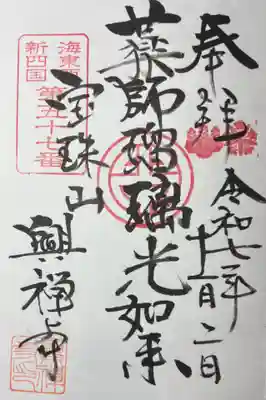 奉拝
令和七年
十一月二日
薬師瑠璃光如来
海東
新四国
第五十七番
宝珠山
興禅寺